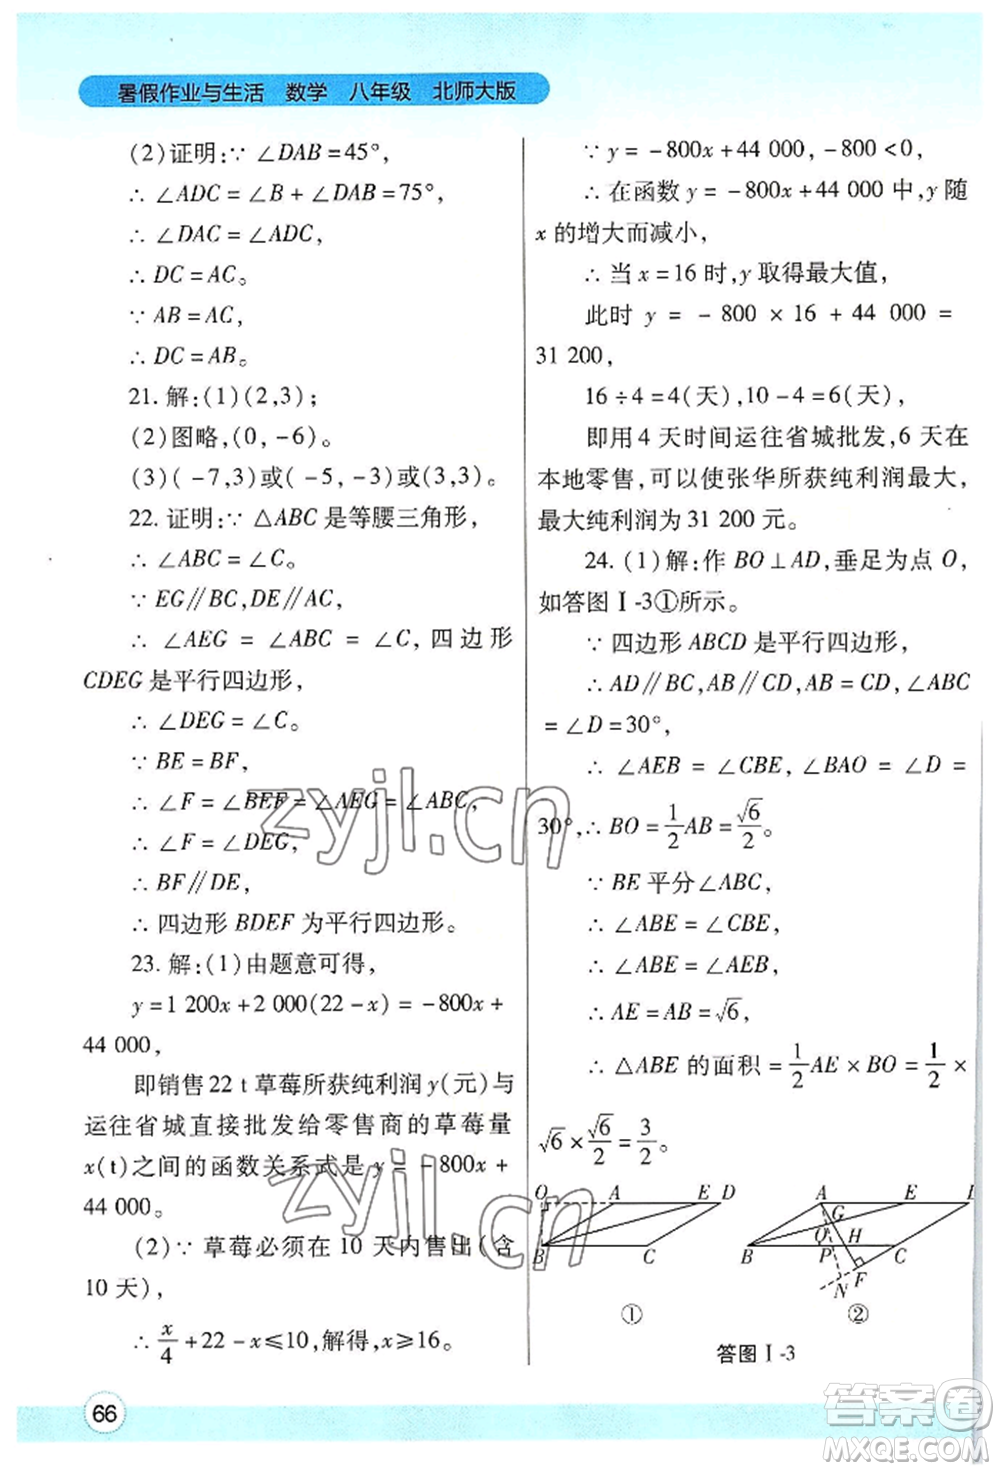 暑假作业与生活 数学 八年级 北师大版
(2)证明:∵ ∠DAB=45°,
∴ ∠ADC=∠B+∠DAB=75°,
∴ ∠DAC=∠ADC,
∴ DC=AC。
∵ AB=AC,
∴ DC=AB。
21.解:(1)(2,3);
(2)图略,(0,-6)。
(3)(-7,3)或(-5,-3)或(3,3)。
22.证明:∵ △ABC是等腰三角形,
∴ ∠ABC=∠C。
∵ EG∥BC,DE∥AC,
∴ ∠AEG=∠ABC=∠C,四边形
CDEG是平行四边形,
∴ ∠DEG=∠C。
∵ BE=BF,
∴ ∠F=∠BEF=∠AEG=∠ABC,
∴ ∠F=∠DEG,
∴ BF∥DE,
∴ 四边形BDEF为平行四边形。
23.解:(1)由题意可得,
y=1 200x+2 000(22-x)=-800x+
44 000,
即销售22 t草莓所获纯利润y(元)与
运往省城直接批发给零售商的草莓量
x(t)之间的函数关系式是y=-800x+
44 000。
(2)∵ 草莓必须在10天内售出(含
10天),
∴ x/4+22-x≤10,解得,x≥16。
∵ y=-800x+44 000,-800<0,
∴ 在函数y=-800x+44 000中,y随
x的增大而减小,
∴ 当x=16时,y取得最大值,
此时 y=-800×16+44 000=
31 200,
16÷4=4(天),10-4=6(天),
即用4天时间运往省城批发,6天在
本地零售,可以使张华所获纯利润最大,
最大纯利润为31 200元。
24.(1)解:作BO⊥AD,垂足为点O,
如答图Ⅰ-3①所示。
∵ 四边形ABCD是平行四边形,
∴ AD∥BC,AB∥CD,AB=CD,∠ABC
=∠D=30°,
∴ ∠AEB=∠CBE,∠BAO=∠D=
30°,∴ BO=1/2AB=√6/2。
∵ BE平分∠ABC,
∴ ∠ABE=∠CBE,
∴ ∠ABE=∠AEB,
∴ AE=AB=√6,
∴ △ABE的面积=1/2AE×BO=1/2×
√6×√6/2=3/2。
O A E D
B C
①
A E D
G
O H
B P C
F
N
②
答图Ⅰ-3
66
zyjl.cn
zyjl.cn
答案圈
MXQE.COM